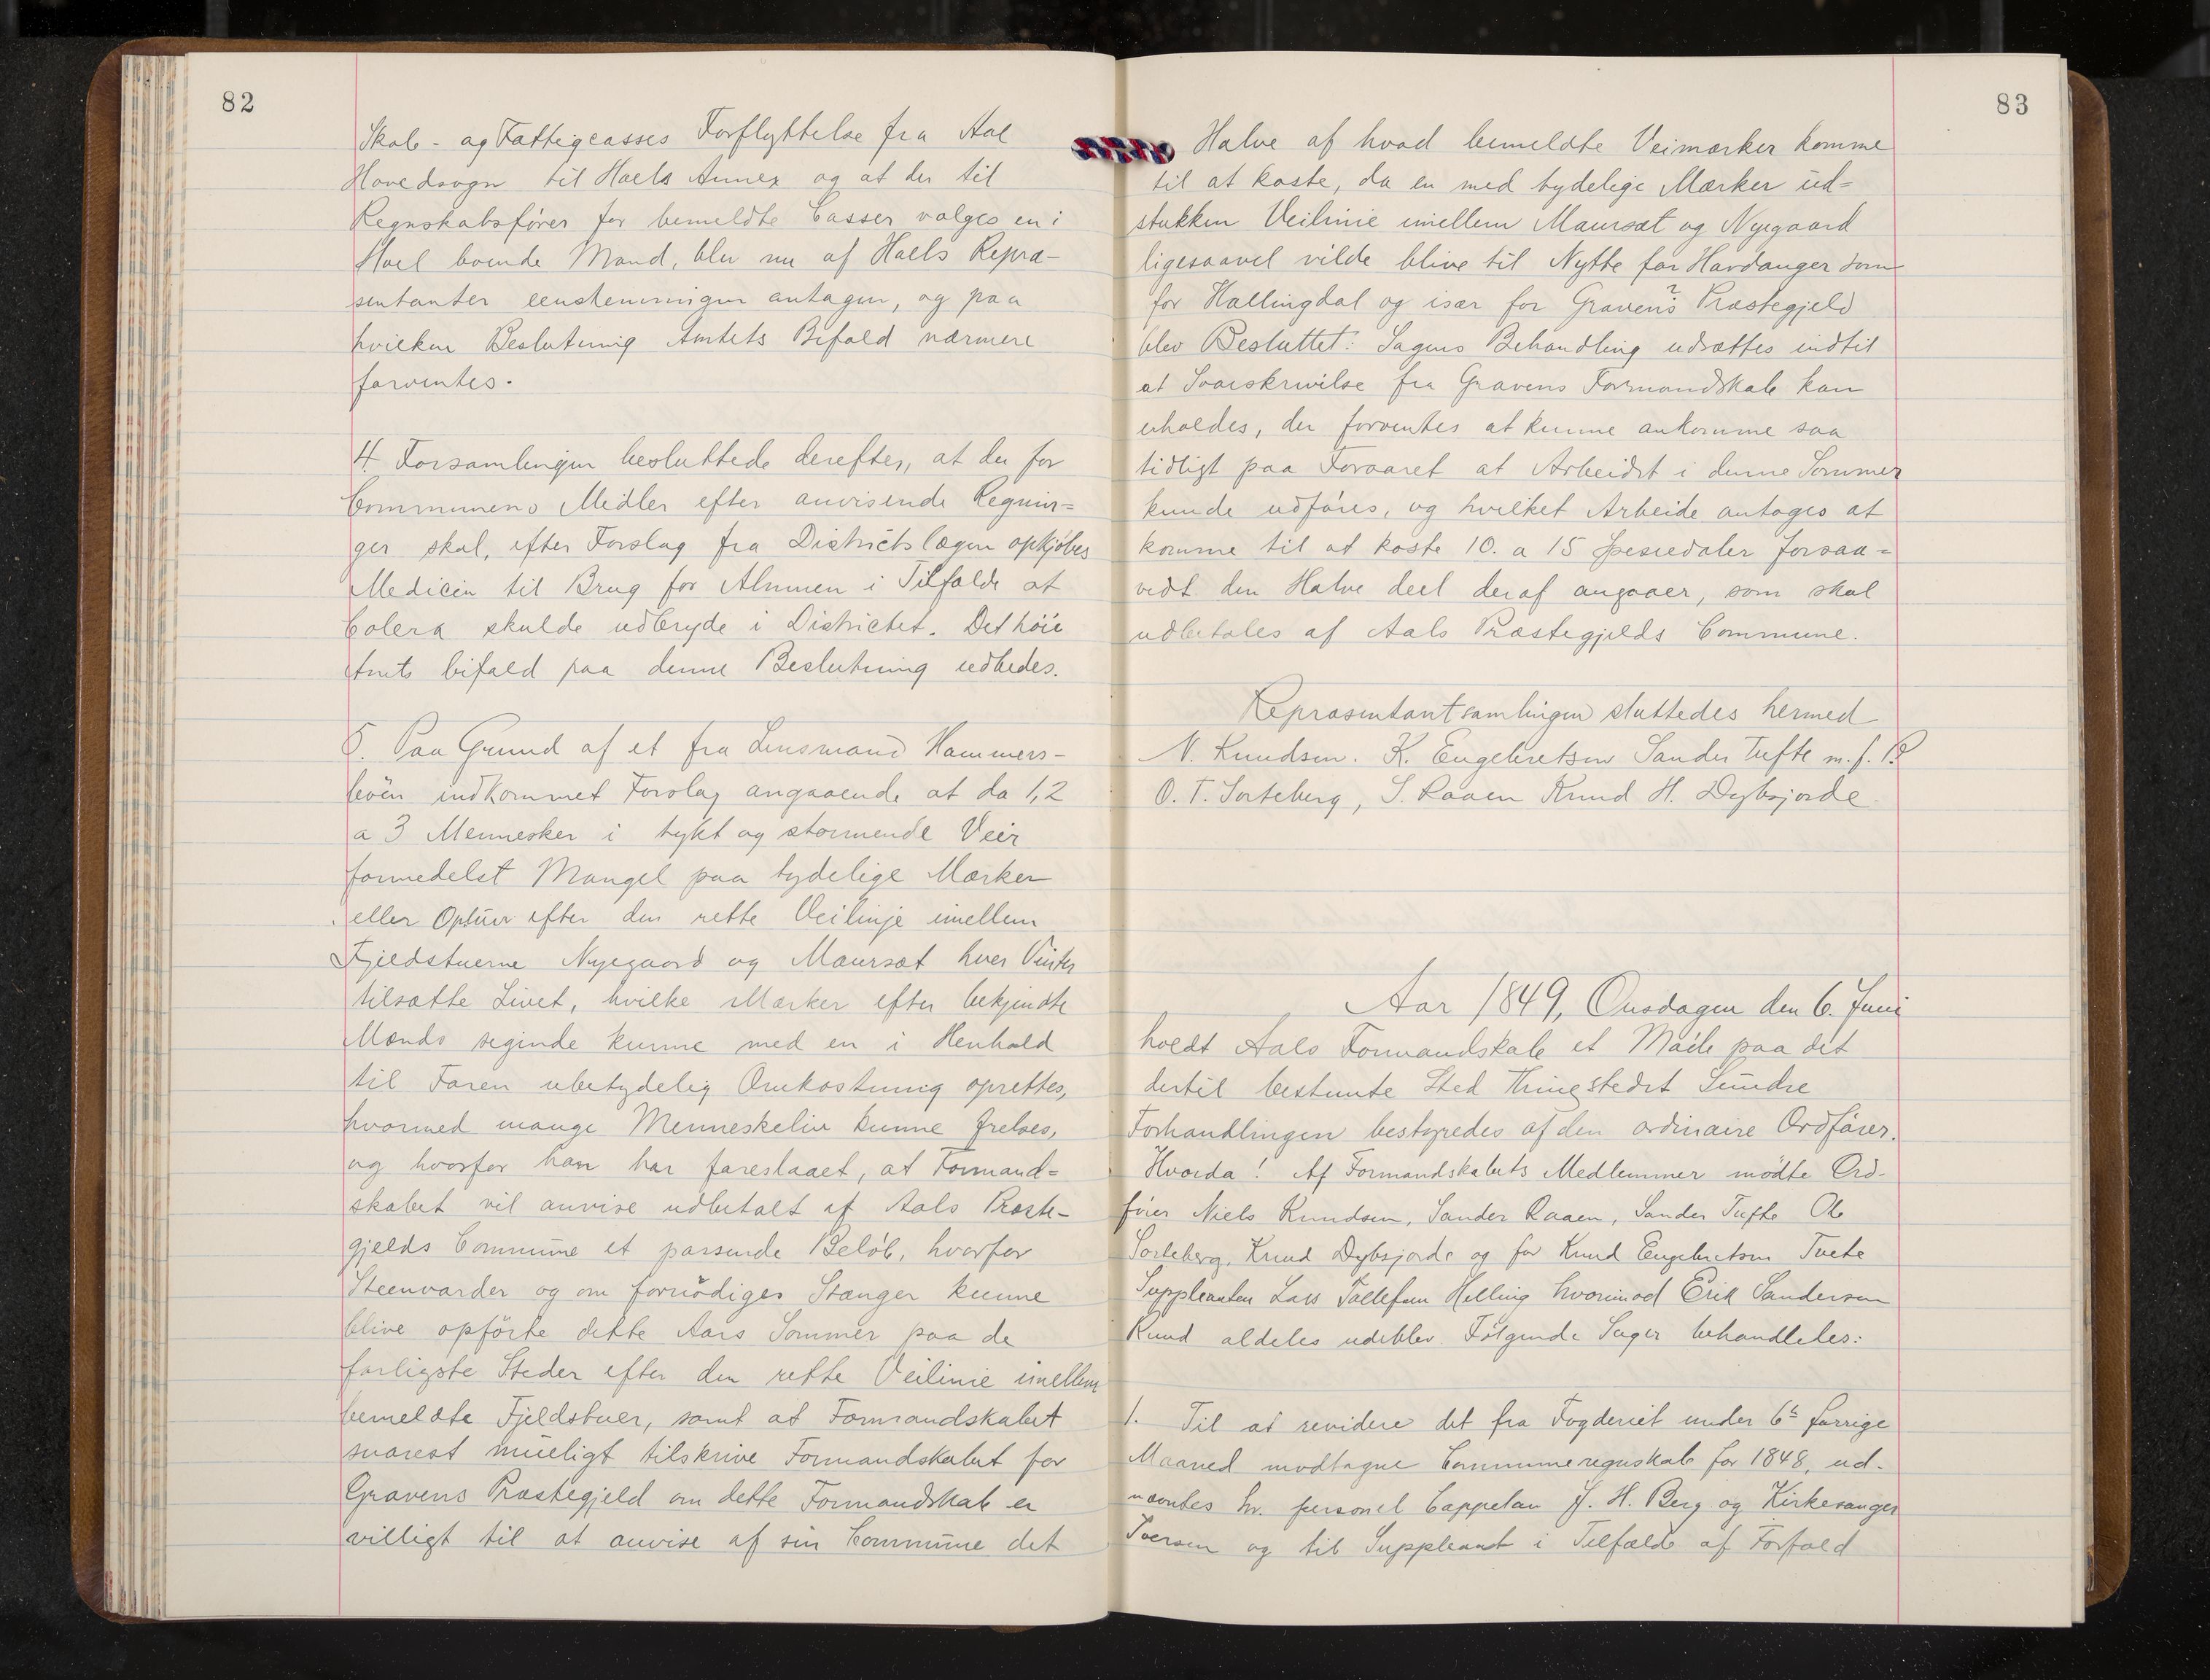 82
Skole- og Fattigcasses Forflyttelse fra Aal
Hovedsogn til Hoels Annex og at der til
Regnskabsfører for bemeldte Casser vælges en i
Hoel boende Mand, blev nu af Hoels Repræ-
sentanter eenstemmigen antagen, og paa
hvilken Beslutning Amtets Bifald nærmere
forventes.
4. Forsamlingen besluttede derefter, at der for
Communens Midler efter anvisende Regnin-
ger skal, efter Forslag fra Districtslægen opkjøbes
Medicin til Brug for Almuen i Tilfælde at
Colera skulde udbryde i Districtet. Det höie
Amts bifald paa denne Beslutning udbedes.
5. Paa Grund af et fra Lensmand Hammers-
böen indkommet Forslag angaaende at da 1, 2
a 3 Mennesker i tykt og stormende Veir
formedelst Mangel paa tydelige Mærker
eller efter den rette Veilinje imellem
Fjeldstuerne Nyegaard og Maursæt hver Vinter
tilsætte Livet, hvilke Mærker efter bekjendte
Mænds sigende kunne med en i Henhold
til Faren ubetydelig Omkostning oprettes,
hvormed mange Menneskeliv kunne frelses,
og hvorfor han har foreslaaet, at Formand=
skabet vil anvise udbetalt af Aals Præste-
gjelds Commune et passende Beløb, hvorfor
Steenvarder og om fornødiges Stænger kunne
blive opförte dette Aars Sommer paa de
farligste Steder efter den rette Veilinie imellem
bemeldte Fjeldstuer, samt at Formandskabet
snarest mueligt tilskrive Formandskabet for
Gravens Præstegjeld om dette Formandskab er
villigt til at anvise af sin Commune det
83
Halve af hvad bemeldte Veimærker komme
til at koste, da en med tydelige Mærker ud=
stukken Veilinie imellem Maursæt og Nyegaard
ligesaavel vilde blive til Nytte for Hardanger som
for Hallingdal og især for Gravens? Præstegjeld
blev Besluttet: Sagens Behandling udsættes indtil
at Svarskrivelse fra Gravens Formandskab kan
erholdes, der forventes at kunne ankomme saa
tidligt paa Foraaret at Arbeidet i denne Sommer
kunde udføres, og hvilket Arbeide antages at
komme til at koste 10. a 15 Spesiedaler forsaa=
vidt den Halve deel deraf angaaer, som skal
udbetales af Aals Præstegjelds Commune.
Repræsentantsamlingen sluttedes hermed
N. Knudsen. K. Engebretsen Sander Tufte m. f. P
O. T. Sorteberg, S. Raaen Knud H. Dybsjorde
Aar 1849, Onsdagen den 6. Juni
holdt Aals Formandskab et Möde paa det
dertil bestemte Sted Thingstedet Sundre
Forhandlingen bestyredes af den ordinaire Ordfører.
Hvorda! Af Formandskabets Medlemmer mödte Ord-
fører Niels Knudsen, Sander Raaen, Sander Tufte Ole
Sorteberg, Knud Dybsjorde og for Knud Engebretsen Tveto
Suppleanten Lars Tollefsen Helling hvorimod Erik Sandersen
Ruud aldeles udeblev. Følgende Sager behandledes:
1. Til at revidere det fra Fogderiet under 6te forrige
Maaned modtagne Communeregnskab for 1848, ud-
nævntes hr. personel Cappelan J. H. Berg og Kirkesanger
Iversen og til Suppleant i Tilfælde af Forfald